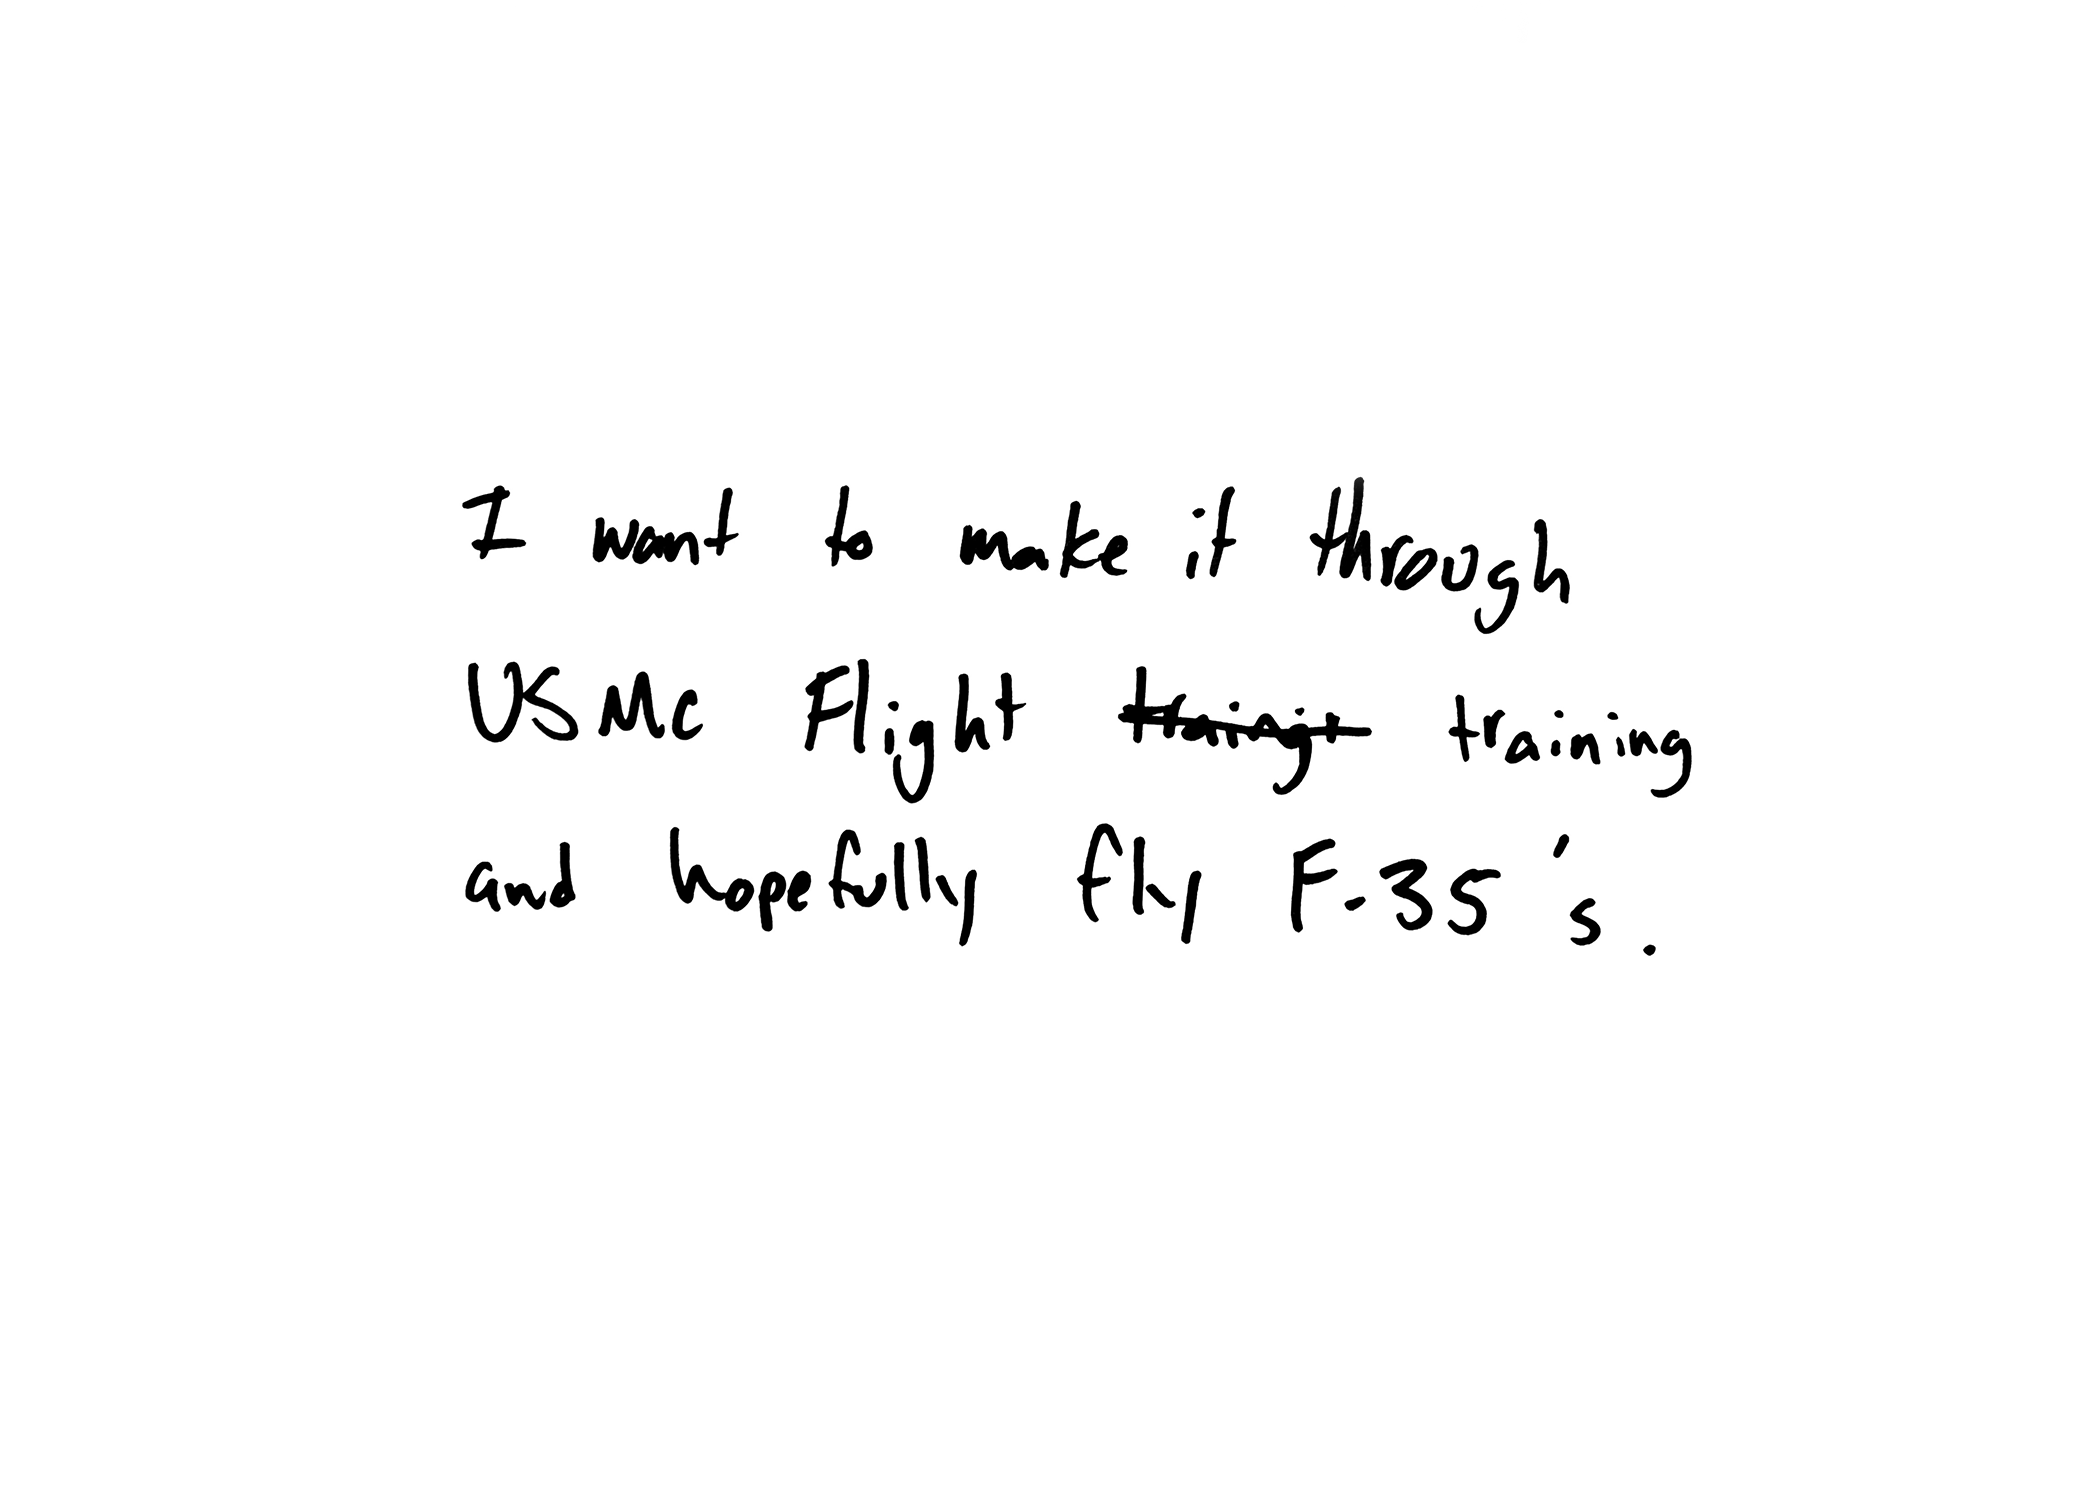 I want to make it through
USMC Flight training
and hopefully fly F-35's.